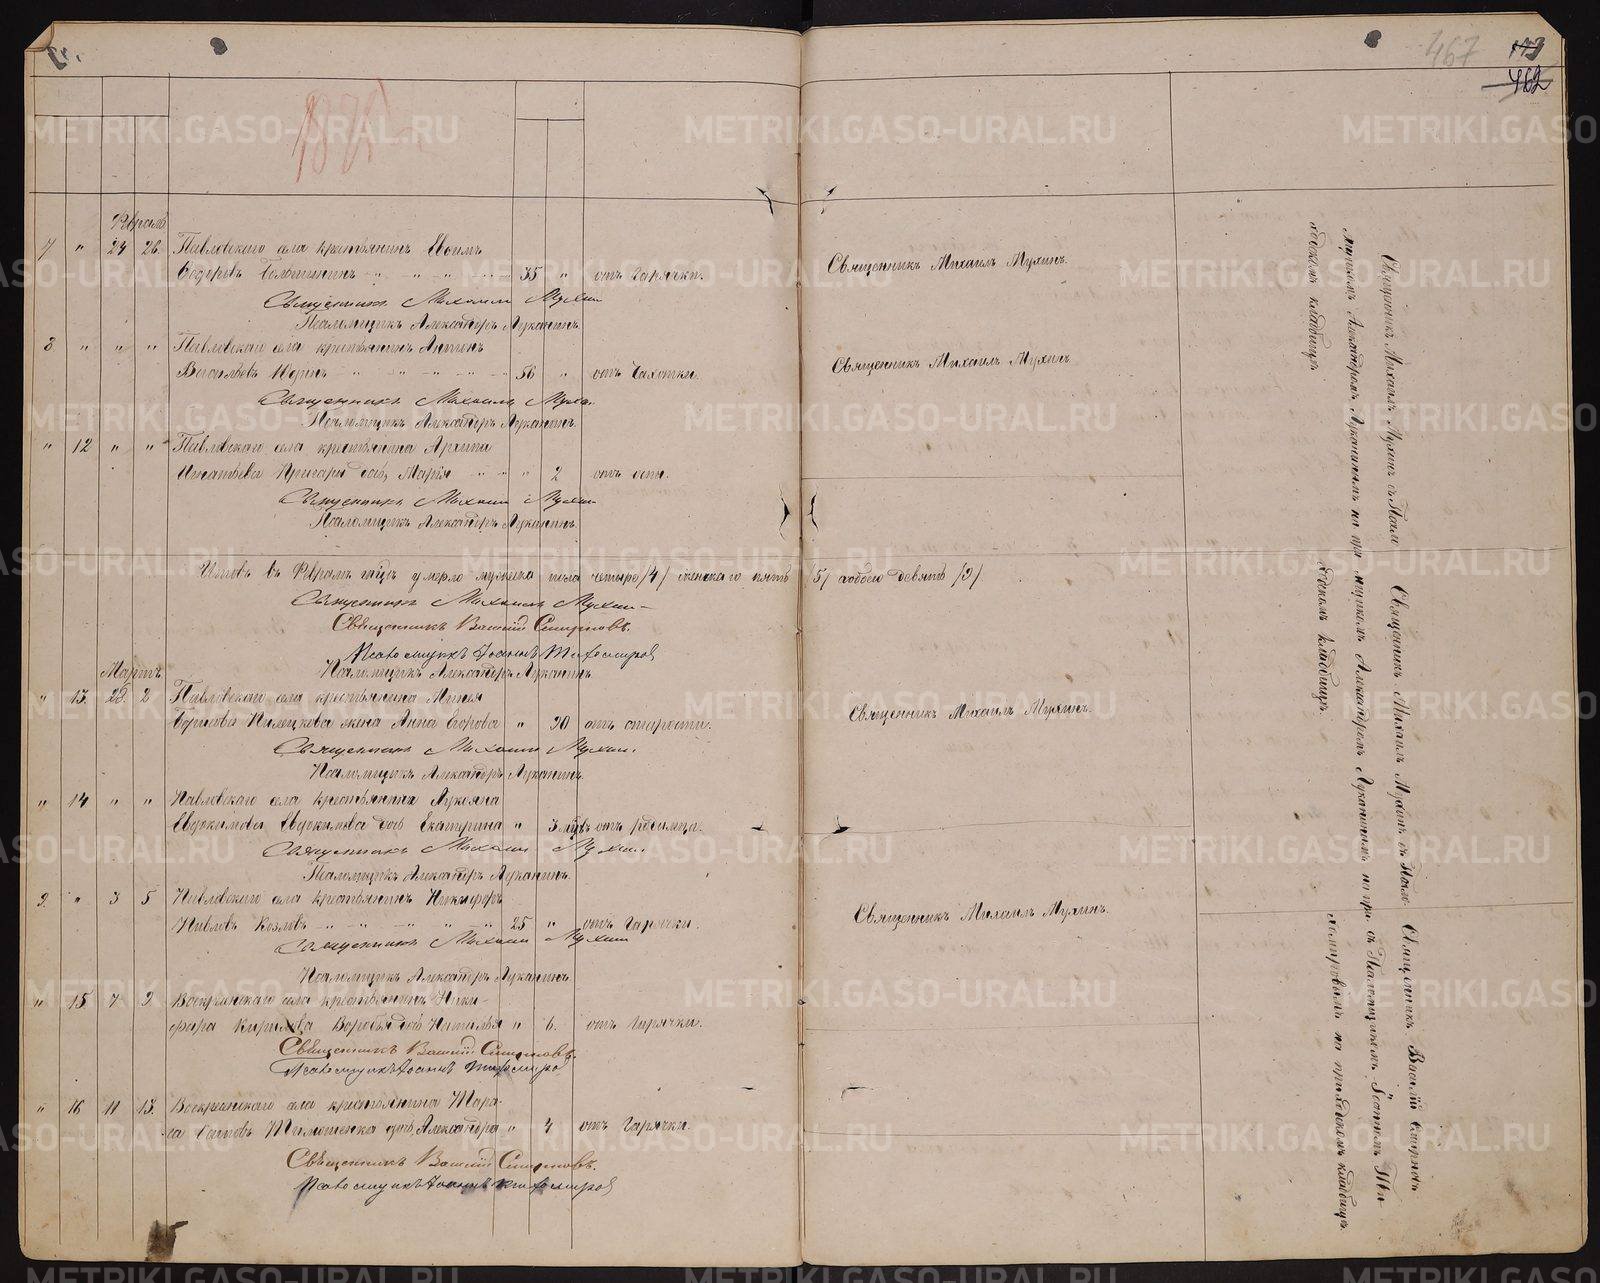 467
173
462
188
Февраль
7 " 24 26 Павловскаго села крестьянинъ Евѳимъ
Ѳедоровъ 35 " отъ горячки.
Священникъ Михаилъ Мухинъ
Псаломщикъ Александръ Луканинъ
Священникъ Михаилъ Мухинъ.
8 " " " Павловскаго села крестьянинъ Антонъ
Васильевъ 56 " отъ чахотки.
Священникъ Михаилъ Мухинъ
Псаломщикъ Александръ Луканинъ.
Священникъ Михаилъ Мухинъ
" 12 " " Павловскаго села крестьянина Архипа
Игнатьева дочь Марія " 2 отъ оспы.
Священникъ Михаилъ Мухинъ
Псаломщикъ Александръ Луканинъ.
Итого въ Февралѣ мцѣ умерло мужеска пола четыре /4/ женскаго пять /5/ обоего девять /9/
Священникъ Михаилъ Мухинъ
Священникъ Василій Смирновъ.
Псаломщикъ Іоаннъ Тихомировъ
Псаломщикъ Александръ Луканинъ
Мартъ
" 13. 28. 2 Павловскаго села крестьянина
жена Анна " 90 отъ старости.
Священникъ Михаилъ Мухинъ.
Псаломщикъ Александръ Луканинъ.
Священникъ Михаилъ Мухинъ.
" 14 " " Павловскаго села крестьянина Лукояна
Евдокимова дочь Екатерина " 3 мцв отъ родимца.
Священникъ Михаилъ Мухинъ.
Псаломщикъ Александръ Луканинъ.
9. " 3 5 Павловскаго села крестьянинъ Никифоръ
Павловъ Козловъ 25 " отъ горячки.
Священникъ Михаилъ Мухинъ
Псаломщикъ Александръ Луканинъ
Священникъ Михаилъ Мухинъ.
" 15 7 9. Воскресенскаго села крестьянина Ники-
фора Кирилова дочь Наталья " 6. отъ горячки.
Священникъ Василій Смирновъ.
Псаломщикъ Іоаннъ Тихомировъ
" 16 11 13. Воскресенскаго села крестьянина Тара-
са Тимошенка дочь Александра " 4 отъ горячки.
Священникъ Василій Смирновъ.
Псаломщикъ Іоаннъ Тихомировъ
Священникъ Михаилъ Мухинъ съ Псалом
щикомъ Александромъ Луканинымъ на при
ходскомъ кладбищѣ.
Священникъ Михаилъ Мухинъ съ Псалом
щикомъ Александромъ Луканинымъ на при
ходскомъ кладбищѣ.
Священникъ Василій Смирновъ
съ Псаломщикомъ Іоанномъ Ти-
хомировымъ на приходскомъ кладбищѣ.
METRIKI.GASO-URAL.RU